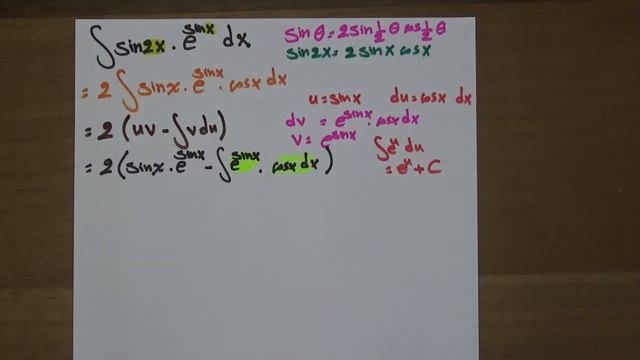 ∫ sin2x · e^sinx dx
sinθ = 2sin½θ cos½θ
sin2x = 2sinx cosx
= 2 ∫ sinx · e^sinx · cosx dx
u = sinx du = cosx dx
= 2 (uv - ∫ v du)
dv = e^sinx · cosx dx
v = e^sinx
= 2 (sinx · e^sinx - ∫ e^sinx · cosx dx)
∫ e^u du
= e^u + C